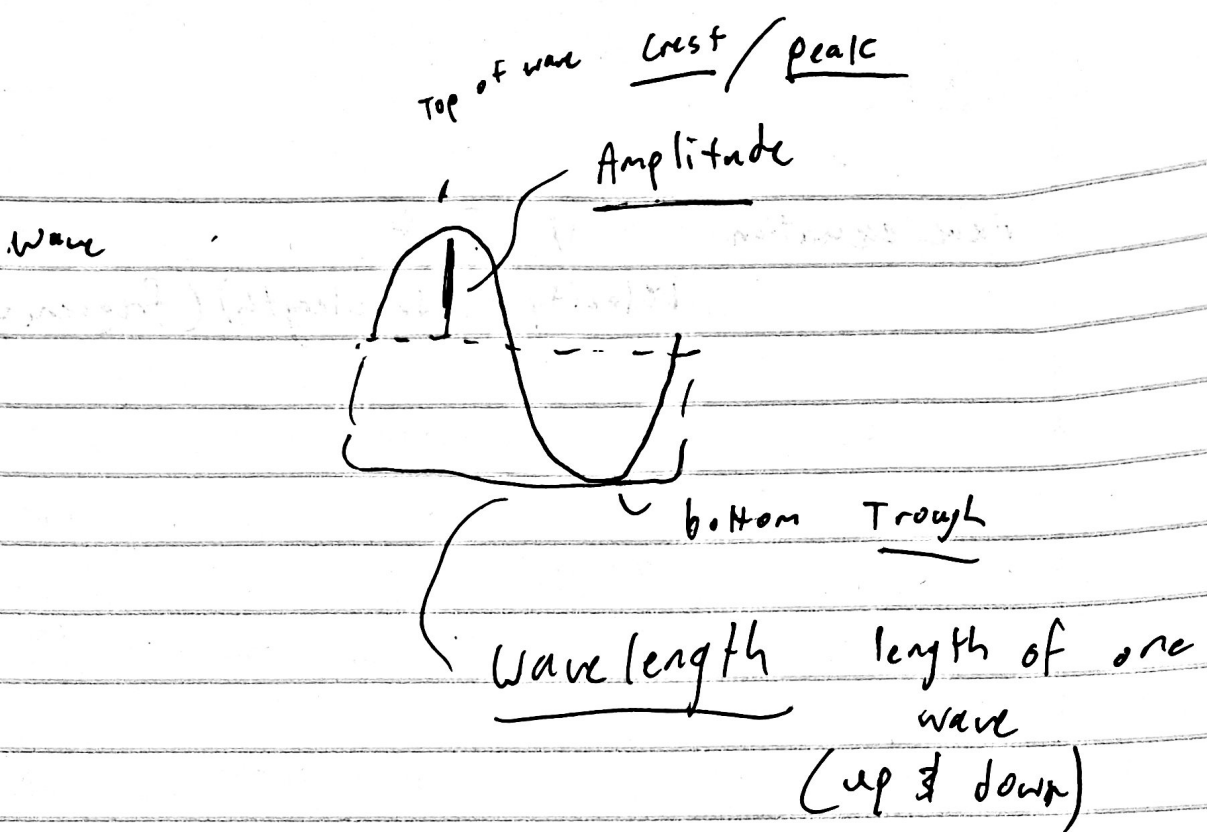 Top of wave Crest / peak
Amplitude
Wave
bottom Trough
Wavelength length of one
wave
(up & down)